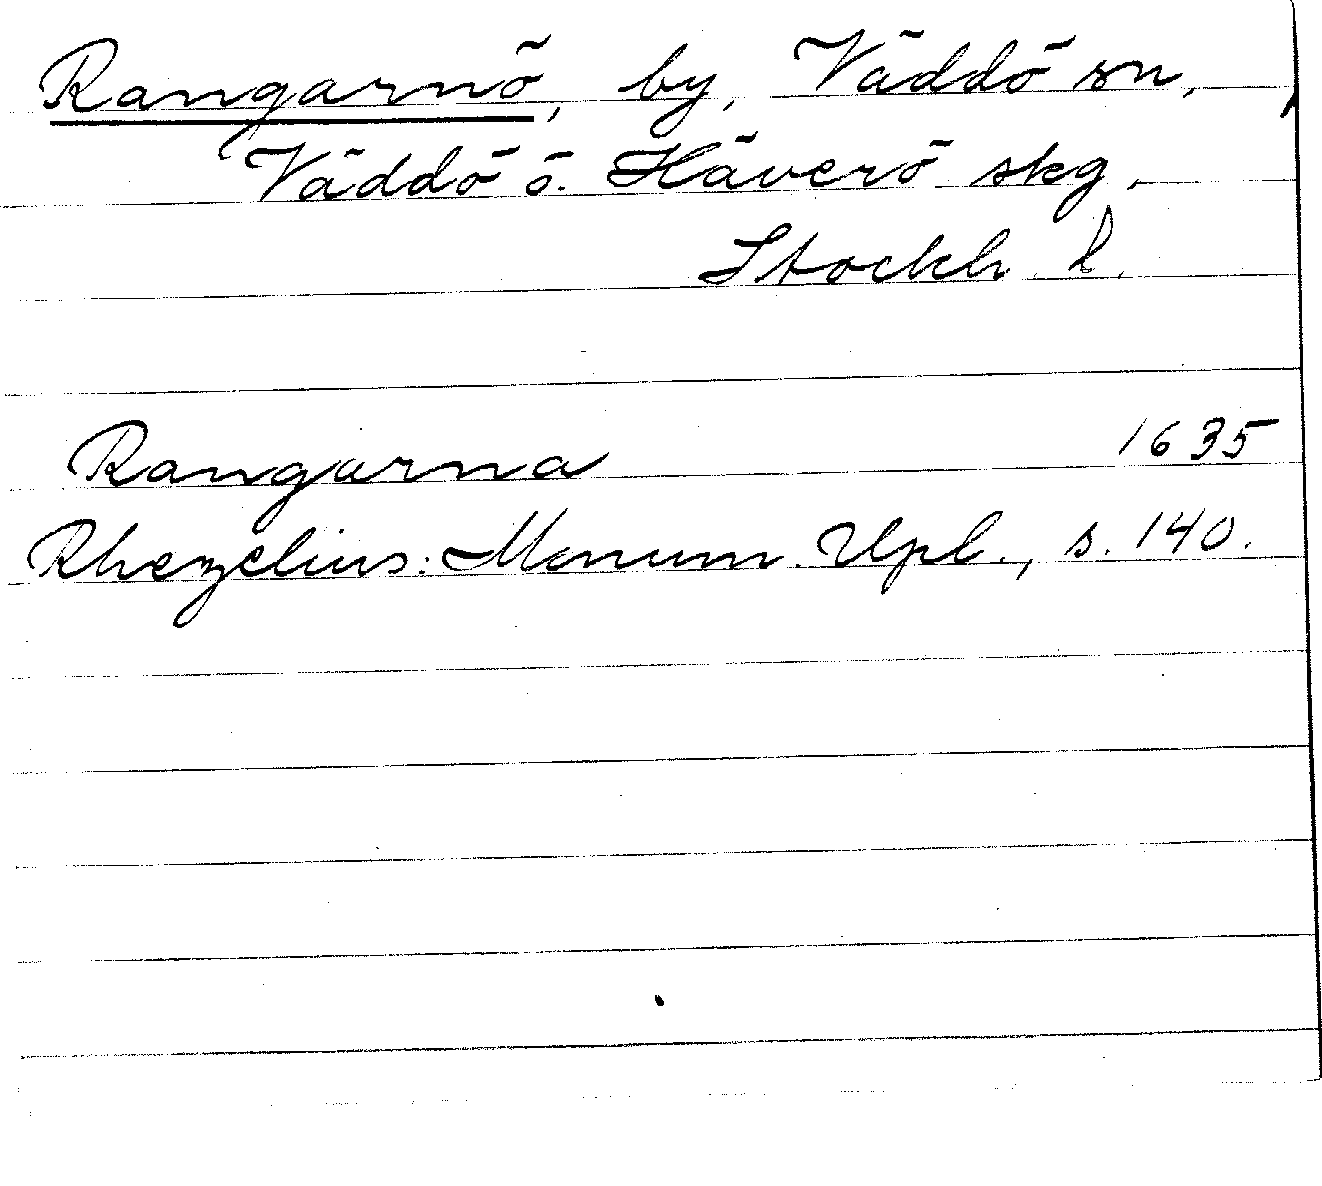 Rangarnö, by, Väddö sn,
Väddö o. Häverö skg,
Stockh. l.
Rangarna 1635
Rhezelius: Monum. Upl., s. 140.